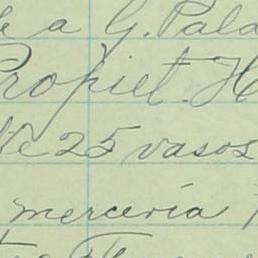 a G. Pala
Propiet. H
te 25 vasos
mercería